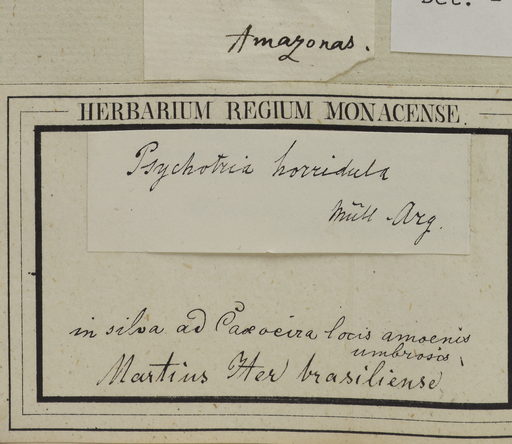 Dec. -
Amazonas.
HERBARIUM REGIUM MONACENSE.
Psychotria horridula
Müll Arg.
in silva ad Caxoeira locis amoenis
umbrosis
Martius Iter brasiliense